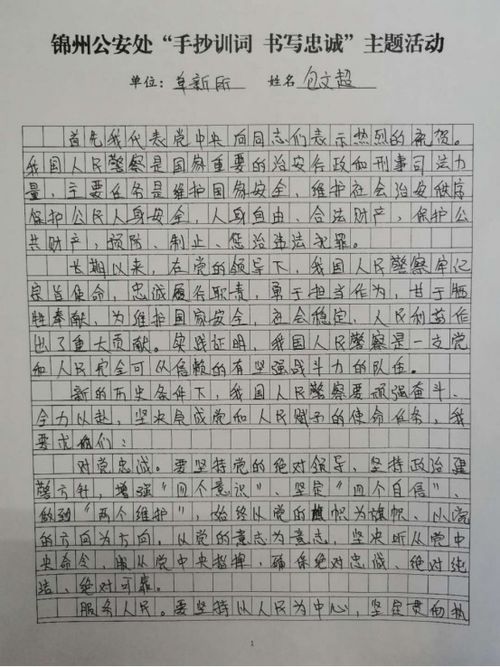 锦州公安处“手抄训词 书写忠诚”主题活动
单位：阜新所 姓名 包文超
首先我代表党中央向同志们表示热烈的祝贺。
我国人民警察是国家重要的治安行政和刑事司法力
量，主要任务是维护国家安全，维护社会治安秩序
保护公民人身安全，人身自由、合法财产，保护公
共财产，预防、制止、惩治违法犯罪。
长期以来，在党的领导下，我国人民警察牢记
宗旨使命，忠诚履行职责，勇于担当作为，甘于牺
牲奉献，为维护国家安全，社会稳定，人民利益作
出了重大贡献。实践证明，我国人民警察是一支党
和人民完全可以信赖的有坚强战斗力的队伍。
新的历史条件下，我国人民警察要顽强奋斗、
全力以赴，坚决完成党和人民赋予的使命任务，我
要求你们：
对党忠诚。要坚持党的绝对领导，坚持政治建
警方针，增强“四个意识”、坚定“四个自信”、
做到“两个维护”，始终以党的旗帜为旗帜、以党
的方向为方向，以党的意志为意志。坚决听从党中
央命令，服从党中央指挥，确保绝对忠诚、绝对纯
洁、绝对可靠。
服务人民。要坚持以人民为中心，坚定贯彻执
1